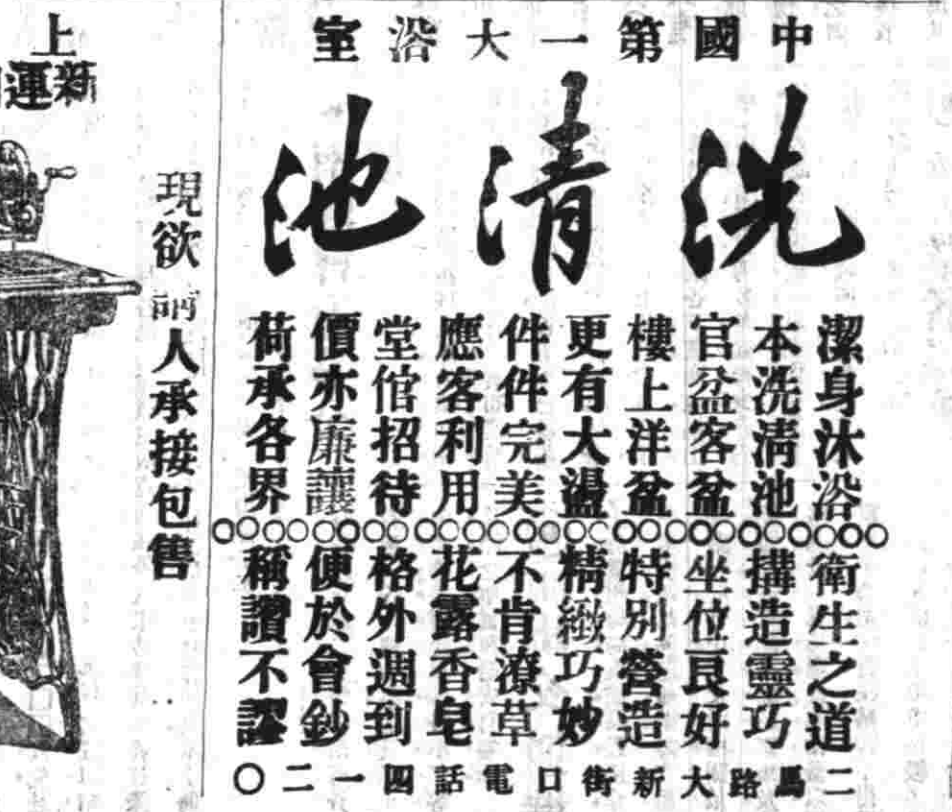 中國第一大浴室
洗清池
潔身沐浴
衛生之道
本洗清池
搆造靈巧
官盆客盆
坐位良好
樓上洋盆
特別營造
更有大盪
精緻巧妙
件件完美
不肯潦草
應客利用
花露香皂
堂倌招待
格外週到
價亦廉讓
便於會鈔
荷承各界
稱讚不謬
二馬路大新街口電話四一二〇
現欲
人承接包售
上
新運